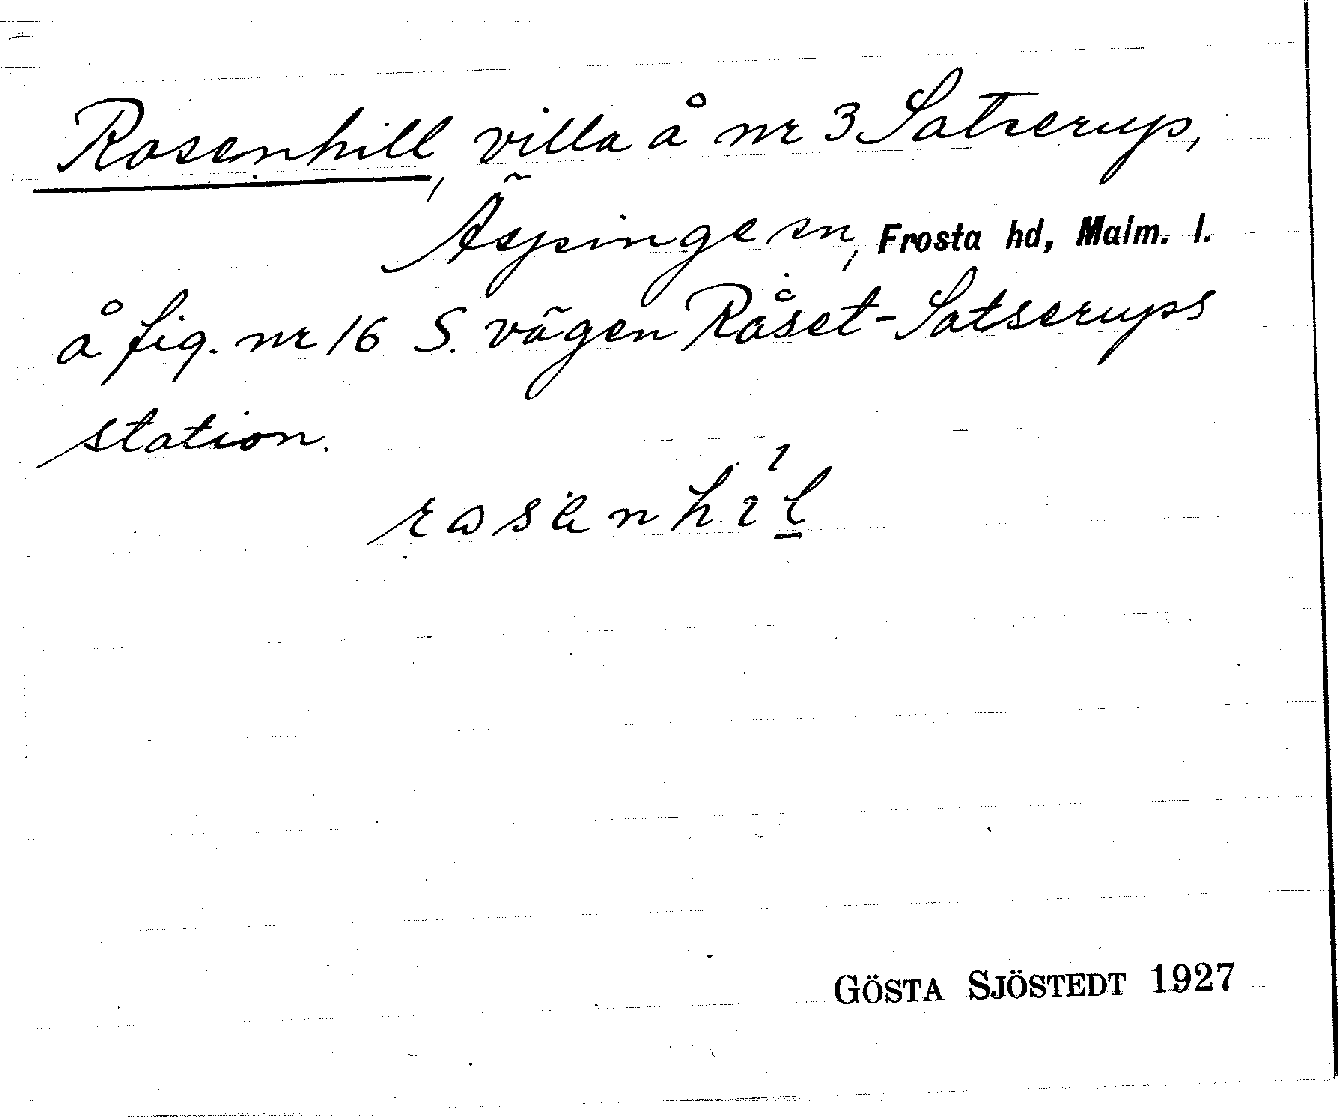 Rosenhill, villa å nr 3 Satserup,
Äspinge sn, Frosta hd, Malm. l.
å fig. nr 16 S. vägen Råset-Satserups
station.
rosenhíl
GÖSTA SJÖSTEDT 1927